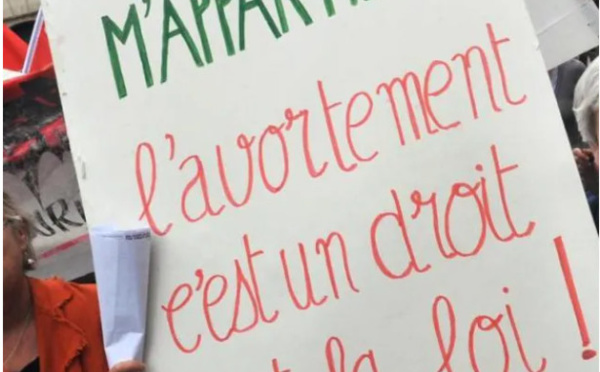 M'APPAR
l'avortement
c'est un droit
la loi !